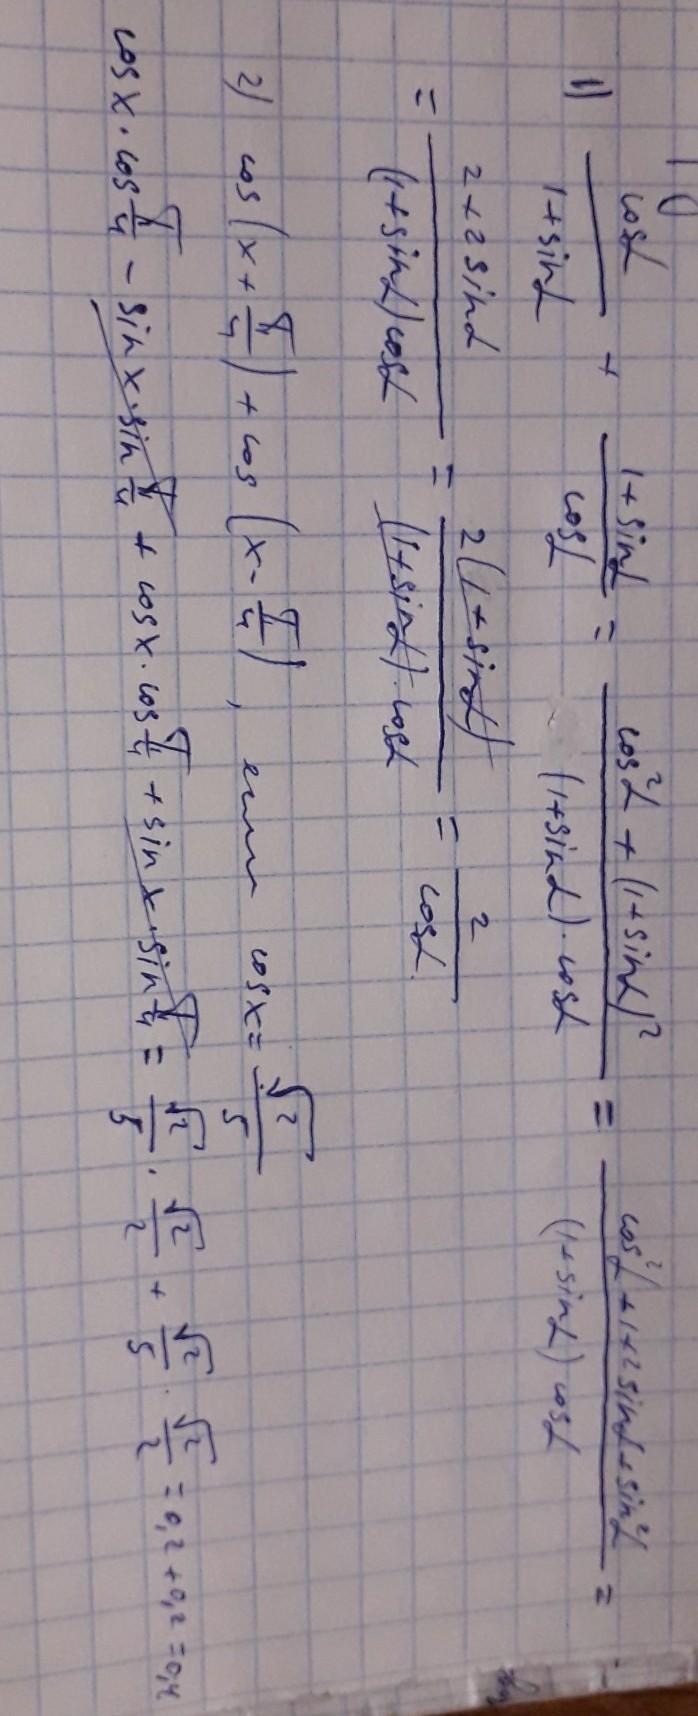 1) cosα/(1+sinα) + (1+sinα)/cosα = (cos²α + (1+sinα)²)/((1+sinα)·cosα) = (cos²α+1+2sinα+sin²α)/((1+sinα)cosα) =
= (2+2sinα)/((1+sinα)cosα) = 2(1+sinα)/((1+sinα)·cosα) = 2/cosα
2) cos(x+π/4) + cos(x-π/4), если cosx = √2/5
cosx·cosπ/4 - sinx·sinπ/4 + cosx·cosπ/4 + sinx·sinπ/4 = √2/5·√2/2 + √2/5·√2/2 = 0,2+0,2=0,4